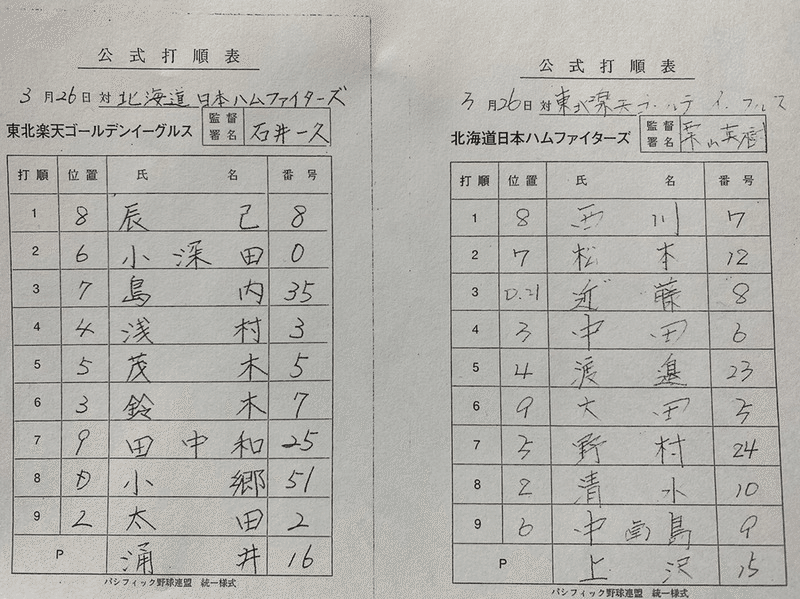 公式打順表
3月26日対北海道日本ハムファイターズ
東北楽天ゴールデンイーグルス 監督署名 石井一久
打順 位置 氏名 番号
1 8 辰己 8
2 6 小深田 0
3 7 島内 35
4 4 浅村 3
5 5 茂木 5
6 3 鈴木 7
7 9 田中和 25
8 D 小郷 51
9 2 太田 2
P 涌井 16
パシフィック野球連盟 統一様式
公式打順表
3月26日対東北楽天ゴールデンイーグルス
北海道日本ハムファイターズ 監督署名 栗山英樹
打順 位置 氏名 番号
1 8 西川 7
2 7 松本 12
3 D.H 近藤 8
4 3 中田 6
5 4 渡邉 23
6 9 大田 5
7 5 野村 24
8 2 清水 10
9 6 中島 9
P 上沢 15
パシフィック野球連盟 統一様式